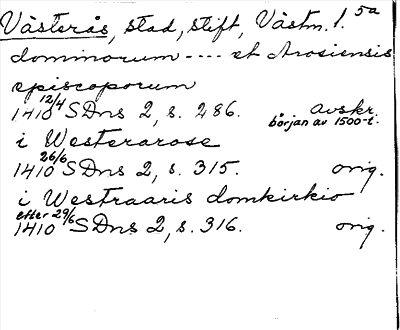 Västerås, stad, stift, Västm. l. 5a
dominorum ---- et Arosiensis
episcoporum
1410 12/4 SDns 2, s. 286. avskr. början av 1500-t.
i Westerarose
1410 26/6 SDns 2, s. 315. orig.
i Westraaris domkirkio
1410 efter 29/6 SDns 2, s. 316. orig.